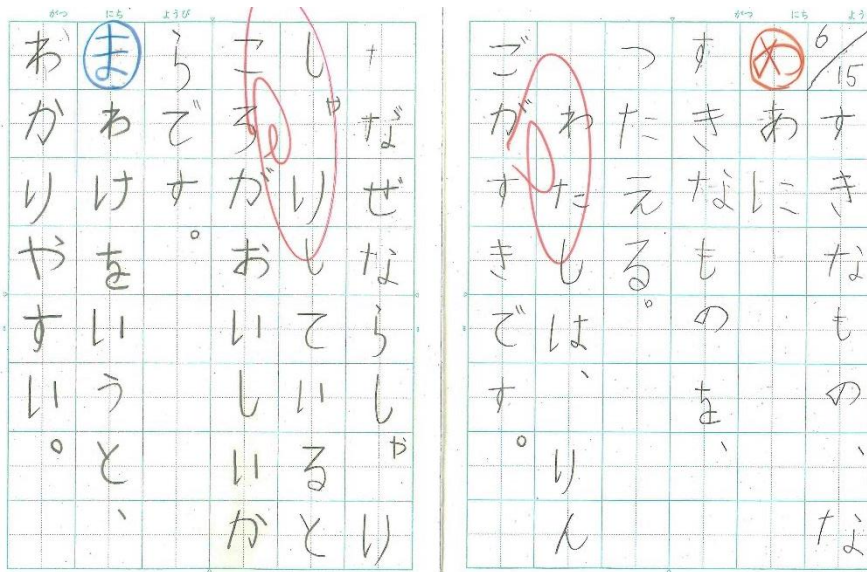 がつ にち よう
6/15 すきなもの、な
め あに
すきなものを、
つたえる。
わたしは、りん
ごがすきです。
がつ にち ようび
なぜならしゃり
しゃりしていると
ころがおいしいか
らです。
ま わけをいうと、
わかりやすい。